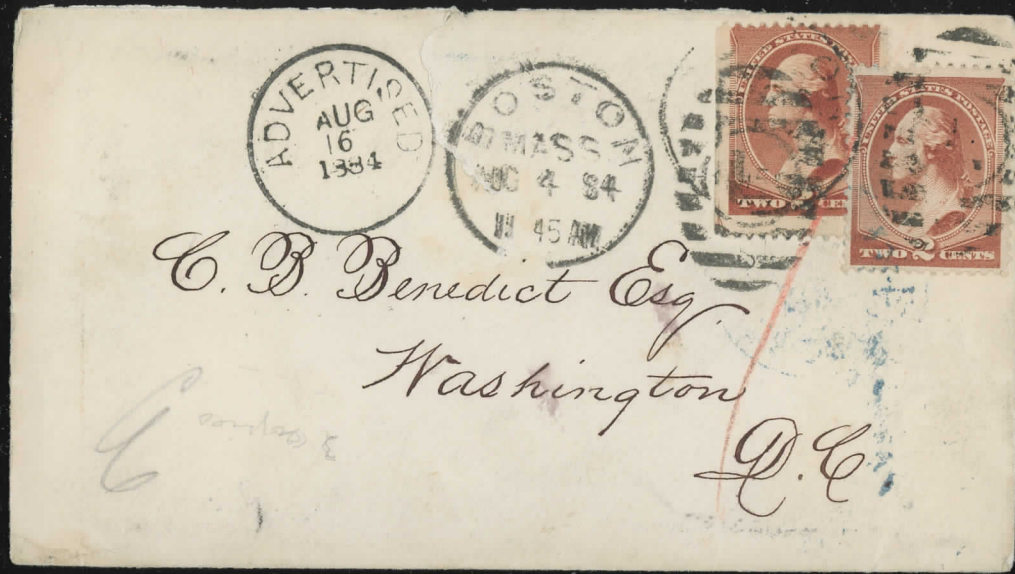 ADVERTISED
AUG
16
1884
BOSTON
MASS.
AUG 4 84
45 AM
UNITED STATES POSTAGE
TWO CENTS
UNITED STATES POSTAGE
TWO 2 CENTS
C. B. Benedict Esq.
Washington
D. C